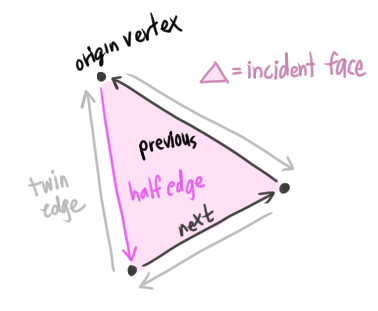 origin vertex
△ = incident face
previous
half edge
twin
edge
next